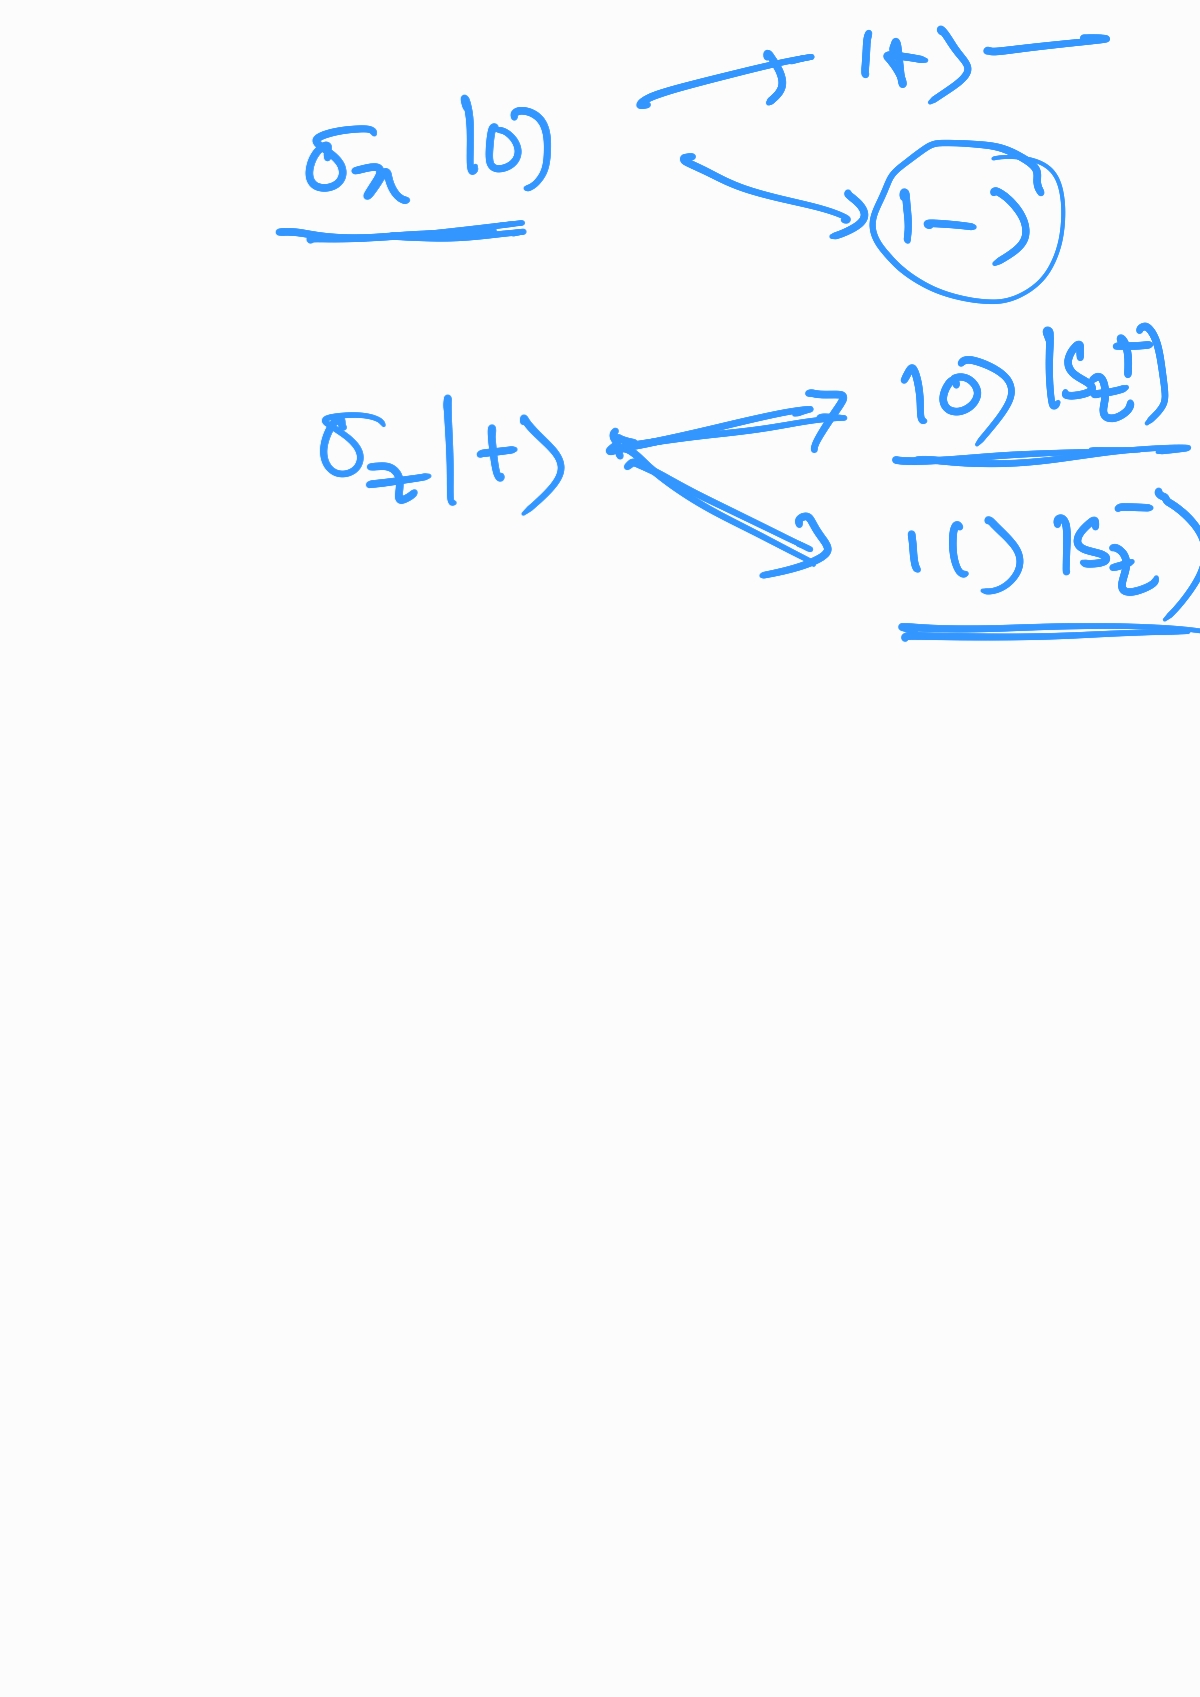 σx |0⟩ → |+⟩ —
→ |−⟩
σz |+⟩ → |0⟩ |Sz+⟩
→ |1⟩ |Sz−⟩